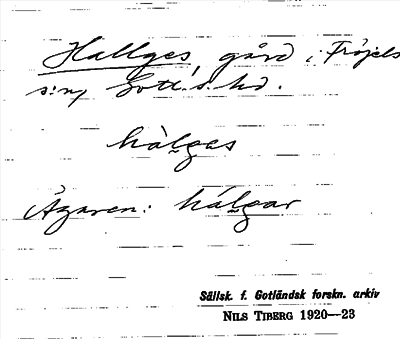 Hallges, gård i Fröjels
s:n, Gotl. s. hd.
hàlges
Ägaren: hálgar
Sällsk. f. Gotländsk forskn. arkiv
NILS TIBERG 1920—23